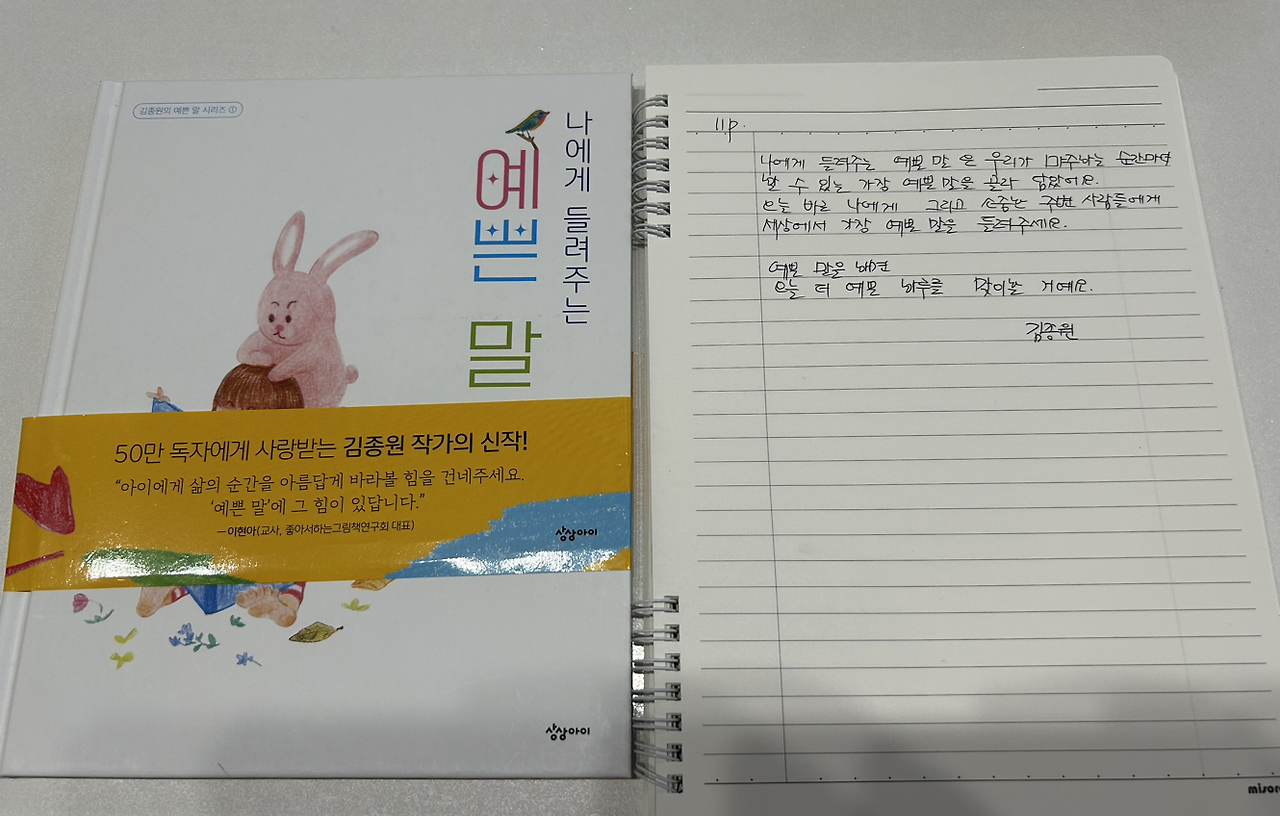 김종원의 예쁜 말 시리즈 ①
나에게 들려주는
예쁜
말
50만 독자에게 사랑받는 김종원 작가의 신작!
“아이에게 삶의 순간을 아름답게 바라볼 힘을 건네주세요.
‘예쁜 말’에 그 힘이 있답니다.”
—이현아(교사, 좋아서하는그림책연구회 대표)
상상아이
상상아이
11p.
나에게 들려주는 예쁜 말은 우리가 마주하는 순간마다
할 수 있는 가장 예쁜 말을 골라 담았어요.
오늘 바로 나에게 그리고 소중한 주변 사람들에게
세상에서 가장 예쁜 말을 들려주세요.
예쁜 말을 배견
오늘 더 예쁜 하루를 맞이할 거예요.
김종원